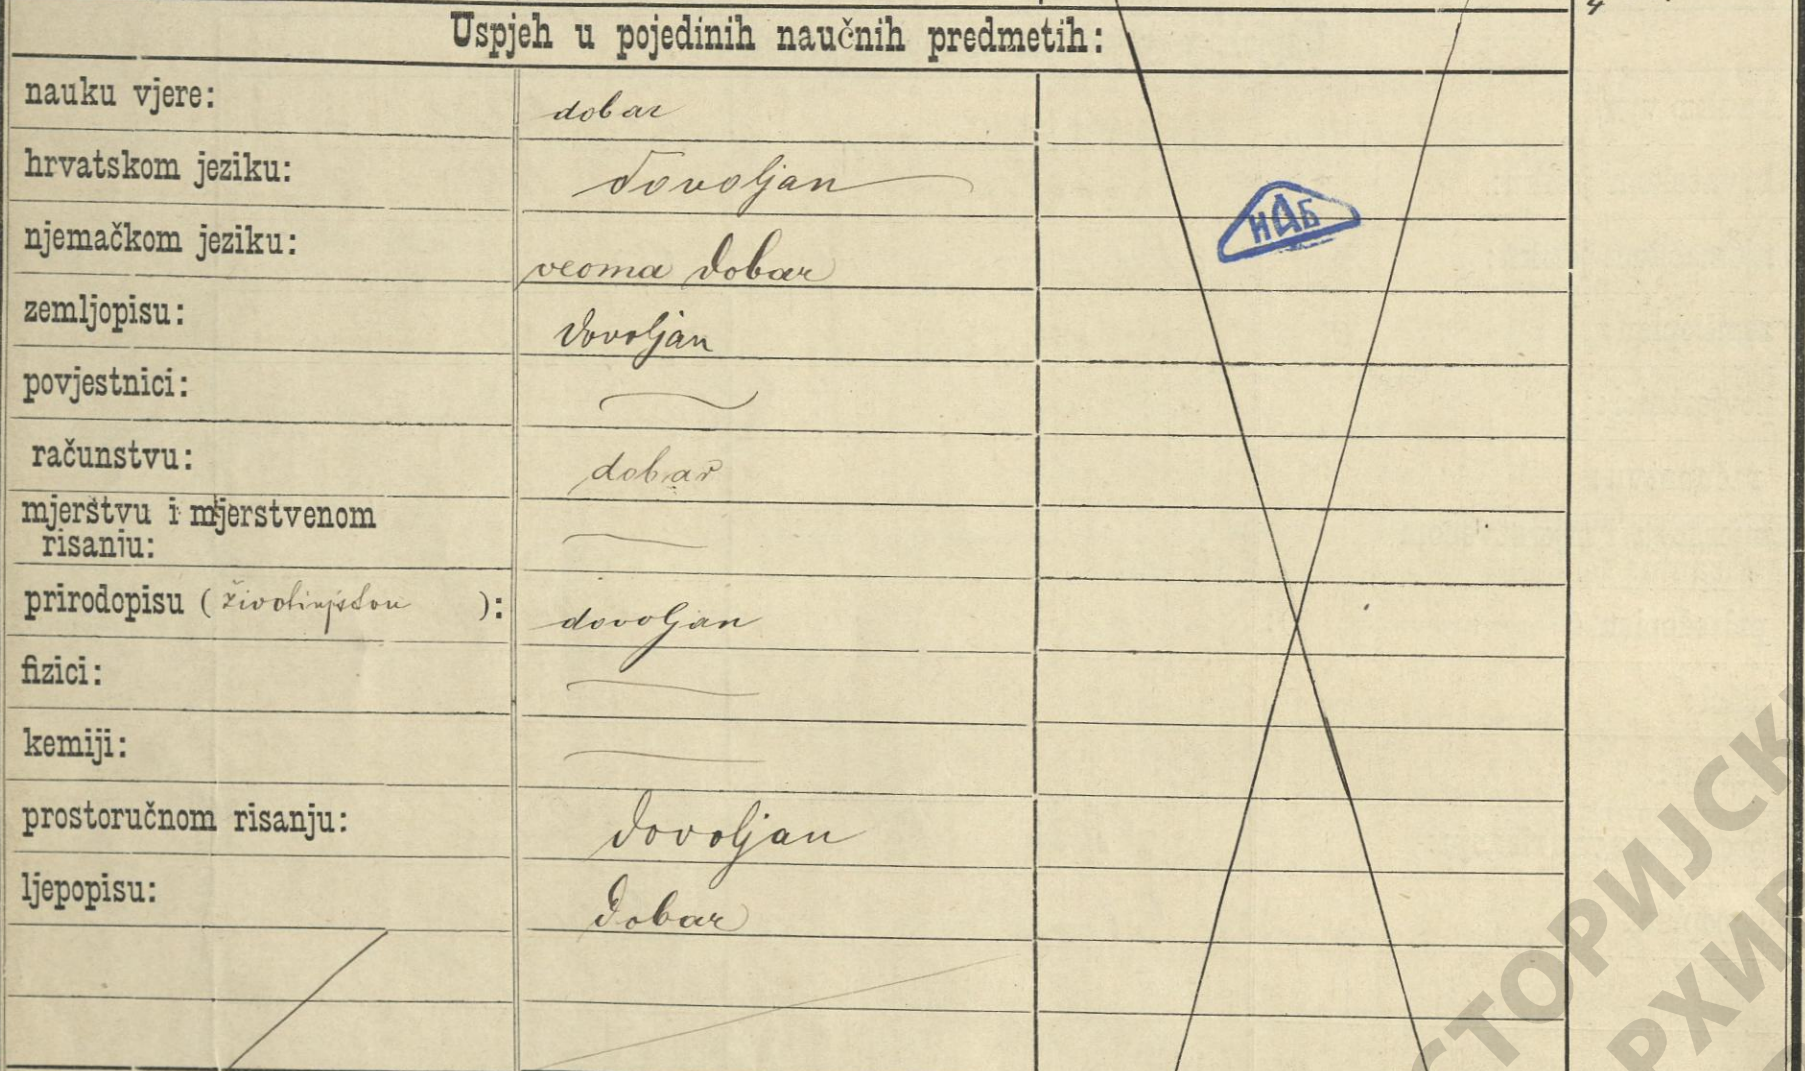 Uspjeh u pojedinih naučnih predmetih:
nauku vjere: dobar
hrvatskom jeziku: dovoljan
njemačkom jeziku: veoma dobar
zemljopisu: dovoljan
povjestnici:
računstvu: dobar
mjerstvu i mjerstvenom
risanju:
prirodopisu (životinjstvu): dovoljan
fizici:
kemiji:
prostoručnom risanju: dovoljan
ljepopisu: dobar
НАБ